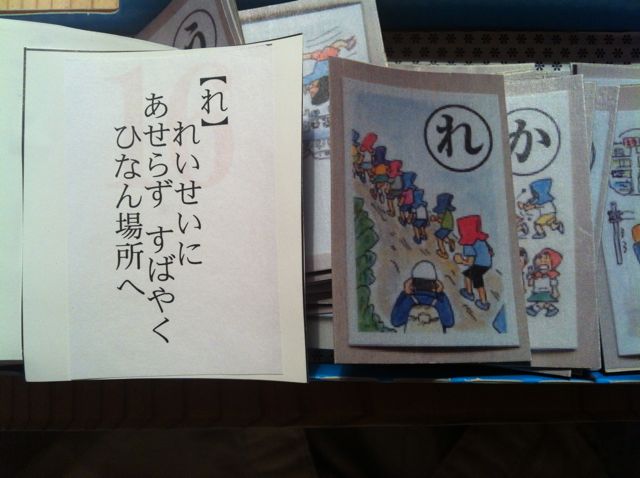 【れ】
れいせいに
あせらず すばやく
ひなん場所へ
れ
か
う